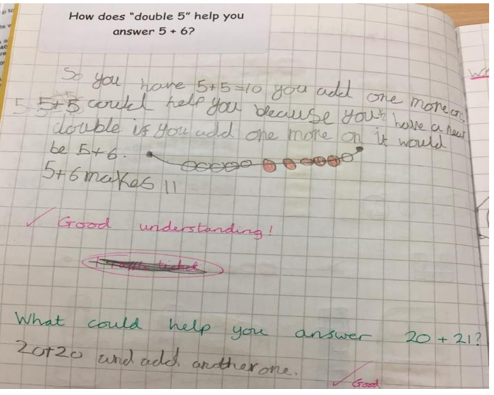 How does "double 5" help you
answer 5 + 6?
So you have 5+5=10 you add one more on
5+5 could help you because you have a near
double if you add one more on it would
be 5+6.
5+6 makes 11
Good understanding!
What could help you answer 20 + 21?
20+20 and add another one.
Good